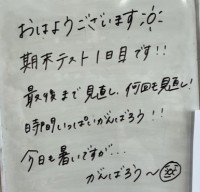 おはようございます
期末テスト1日目です!!
最後まで見直し、何回も見直し!
時間いっぱいがんばろう!!
今日も暑いですが…
がんばろう〜